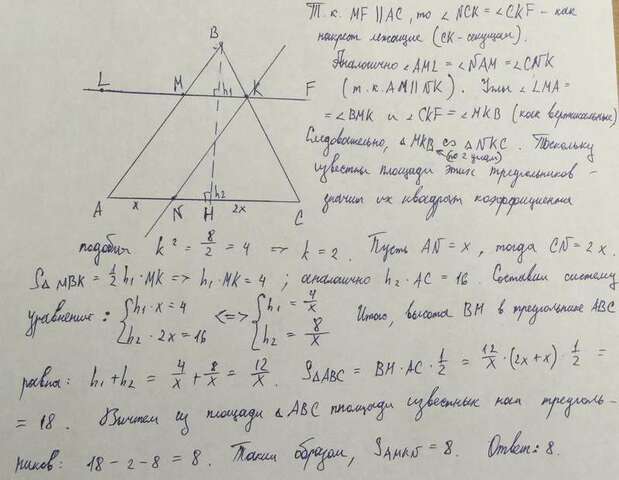 B
L
M
h₁
K
F
A
x
N
H
h₂
2x
C
Т.к. MF || AC, то ∠NCK = ∠CKF - как
накрест лежащие (CK-секущая).
Аналогично ∠AML = ∠NAM = ∠CNK
(т.к. AM || NK). Углы ∠LMA =
= ∠BMK и ∠CKF = ∠MKB (как вертикальные)
Следовательно, △MKB ∾ △NKC. Поскольку
(по 2 углам)
известны площади этих треугольников -
значит их квадрат коэффициента
подобия k² = 8/2 = 4 => k = 2. Пусть AN = x, тогда CN = 2x.
S△MBK = 1/2 h₁·MK => h₁·MK = 4; аналогично h₂·AC = 16. Составим систему
уравнения: { h₁·x = 4 { h₂·2x = 16 <=> { h₁ = 4/x { h₂ = 8/x Итого, высота BH в треугольнике ABC
равна: h₁ + h₂ = 4/x + 8/x = 12/x. S△ABC = BH·AC·1/2 = 12/x·(2x+x)·1/2 =
= 18. Вычтем из площади △ABC площади известных нам треуголь-
ников: 18 - 2 - 8 = 8. Таким образом, SAMKN = 8. Ответ: 8.